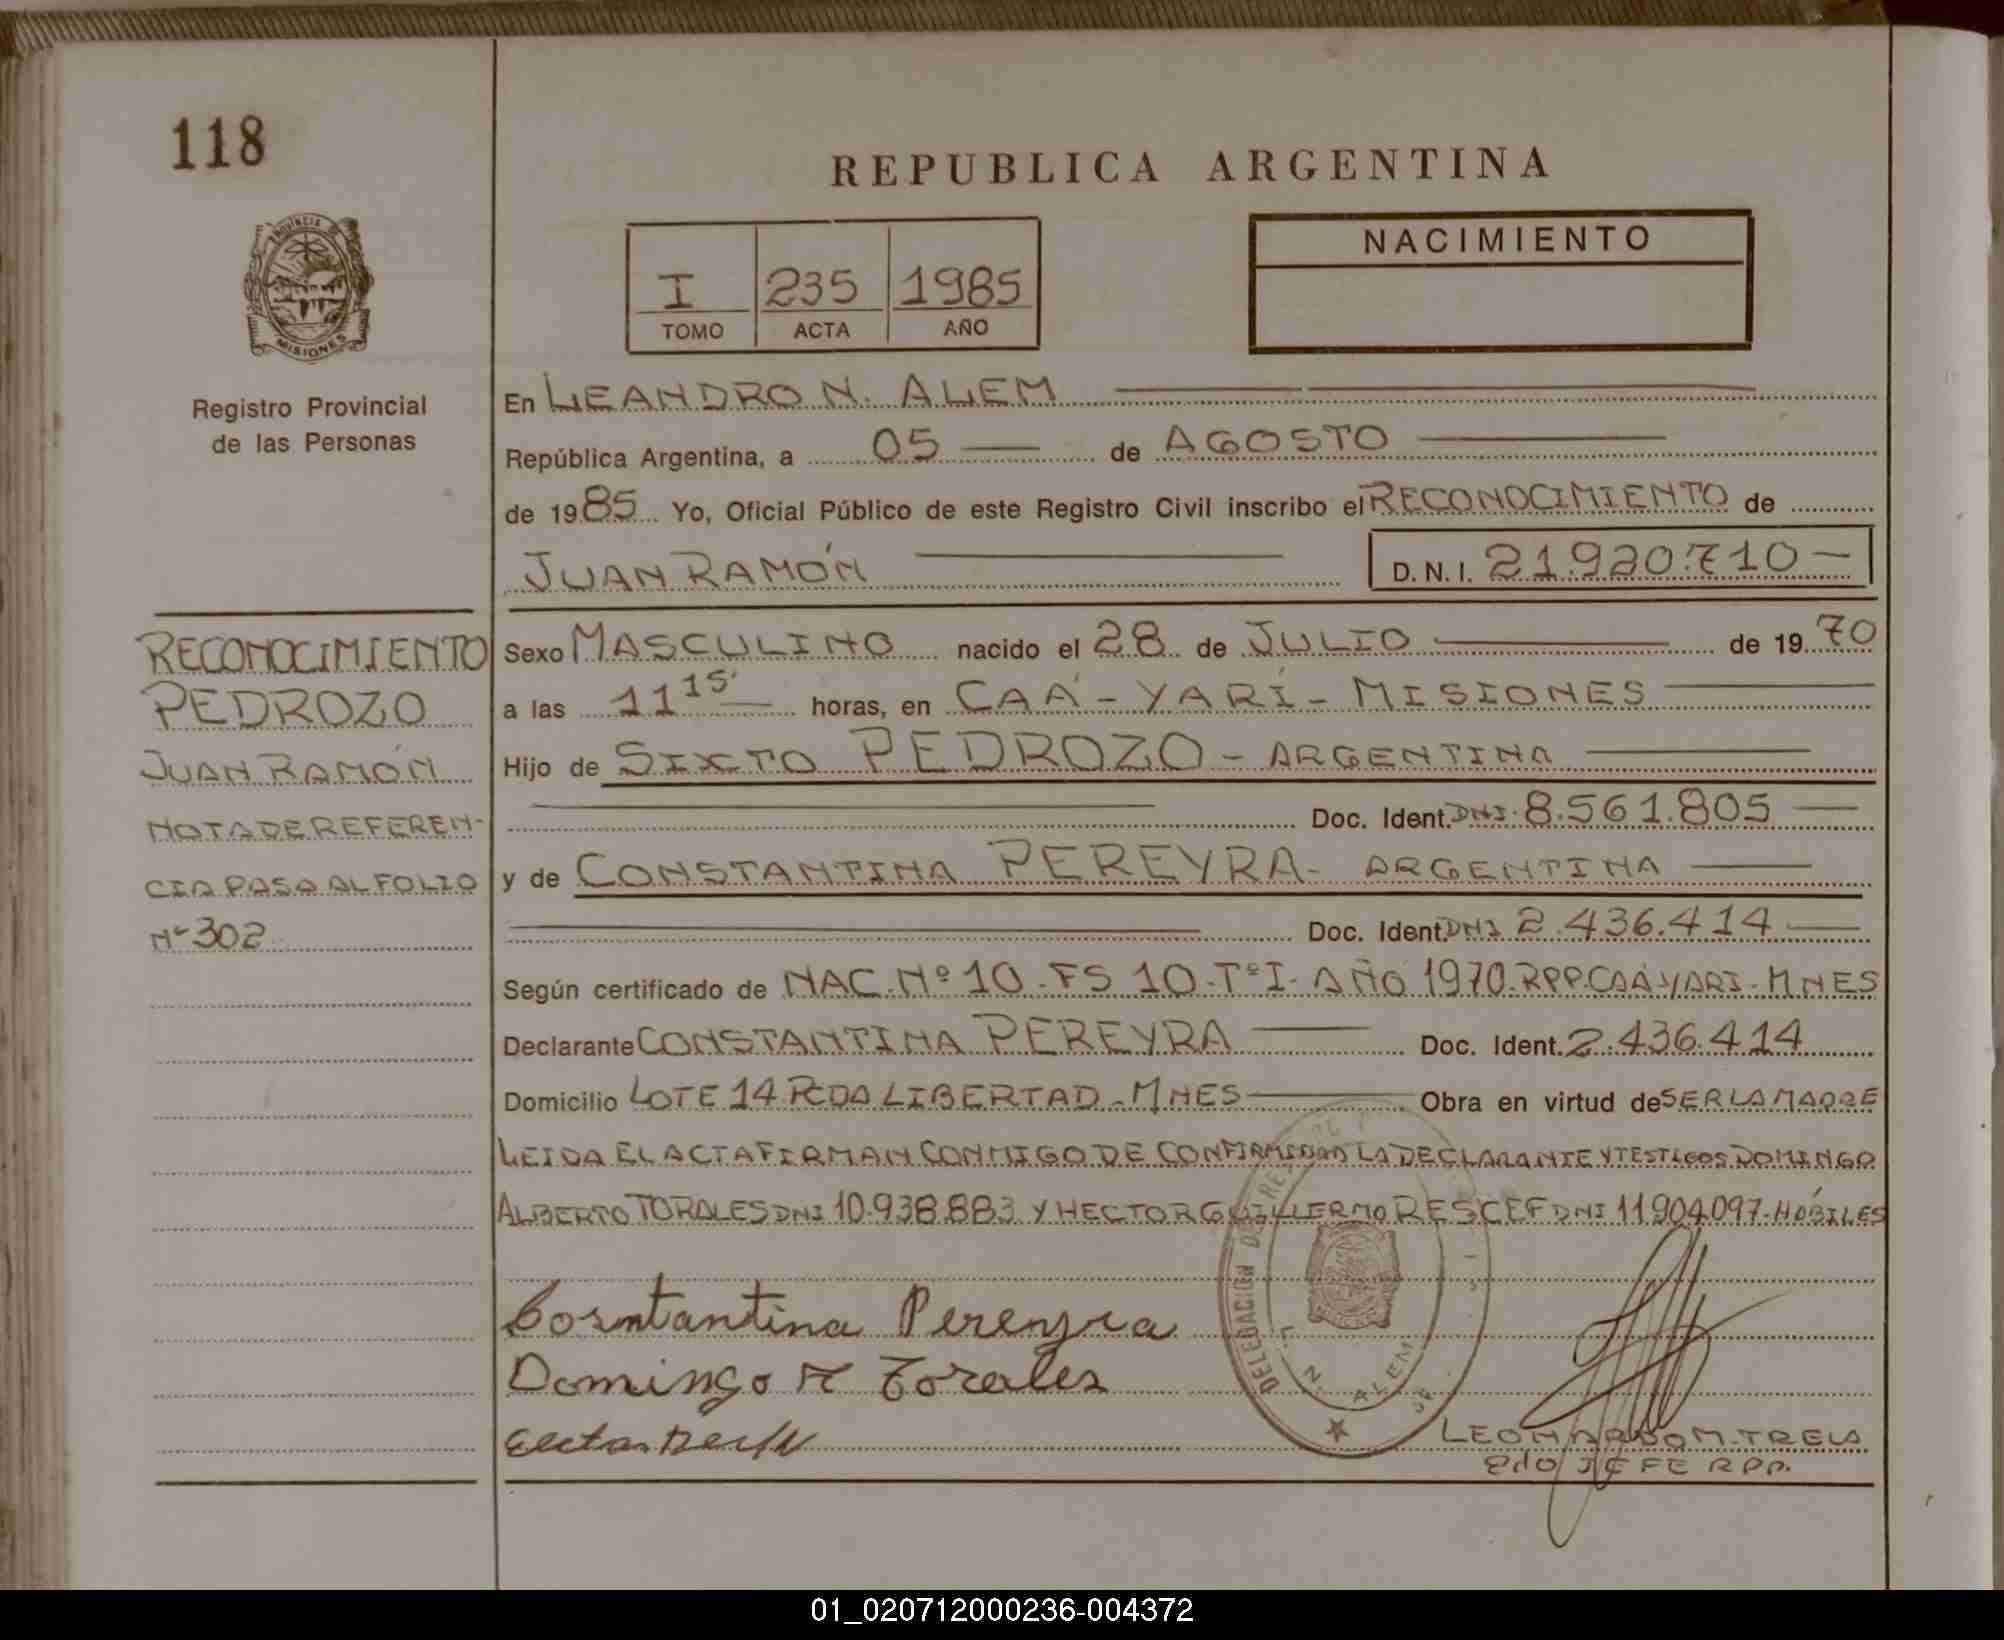 118
REPUBLICA ARGENTINA
PROVINCIA DE
MISIONES
I 235 1985
TOMO ACTA AÑO
NACIMIENTO
Registro Provincial
de las Personas
En LEANDRO N. ALEM
República Argentina, a 05 de AGOSTO
de 1985 Yo, Oficial Público de este Registro Civil inscribo el RECONOCIMIENTO de
JUAN RAMÓN D.N.I. 21.920.710
RECONOCIMIENTO
PEDROZO
JUAN RAMÓN
NOTA DE REFEREN-
CIA PASA AL FOLIO
Nº 302
Sexo MASCULINO nacido el 28 de JULIO de 1970
a las 11 15' horas, en CAÁ-YARÍ-MISIONES
Hijo de SIXTO PEDROZO - ARGENTINA
Doc. Ident. DNI 8.561.805
y de CONSTANTINA PEREYRA - ARGENTINA
Doc. Ident. DNI 2.436.414
Según certificado de NAC. Nº 10-FS 10-TºI-AÑO 1970.RPP.CAÁ-YARI-MNES
Declarante CONSTANTINA PEREYRA Doc. Ident. 2.436.414
Domicilio LOTE 14 PCDA LIBERTAD-MNES Obra en virtud de SER LA MADRE
LEIDA EL ACTA FIRMAN CONMIGO DE CONFIRMIDAD LA DECLARANTE Y TESTIGOS DOMINGO
ALBERTO TORALES DNI 10.938.883 Y HECTOR GUILLERMO RESCEF DNI 11.904.097-HÁBILES
Cosntantina Pereyra
Domingo A Torales
DELEGACIÓN DEL RE
L. N. ALEM
LEONARDO M. TRELA
2do JEFE RPP.
01_020712000236-004372